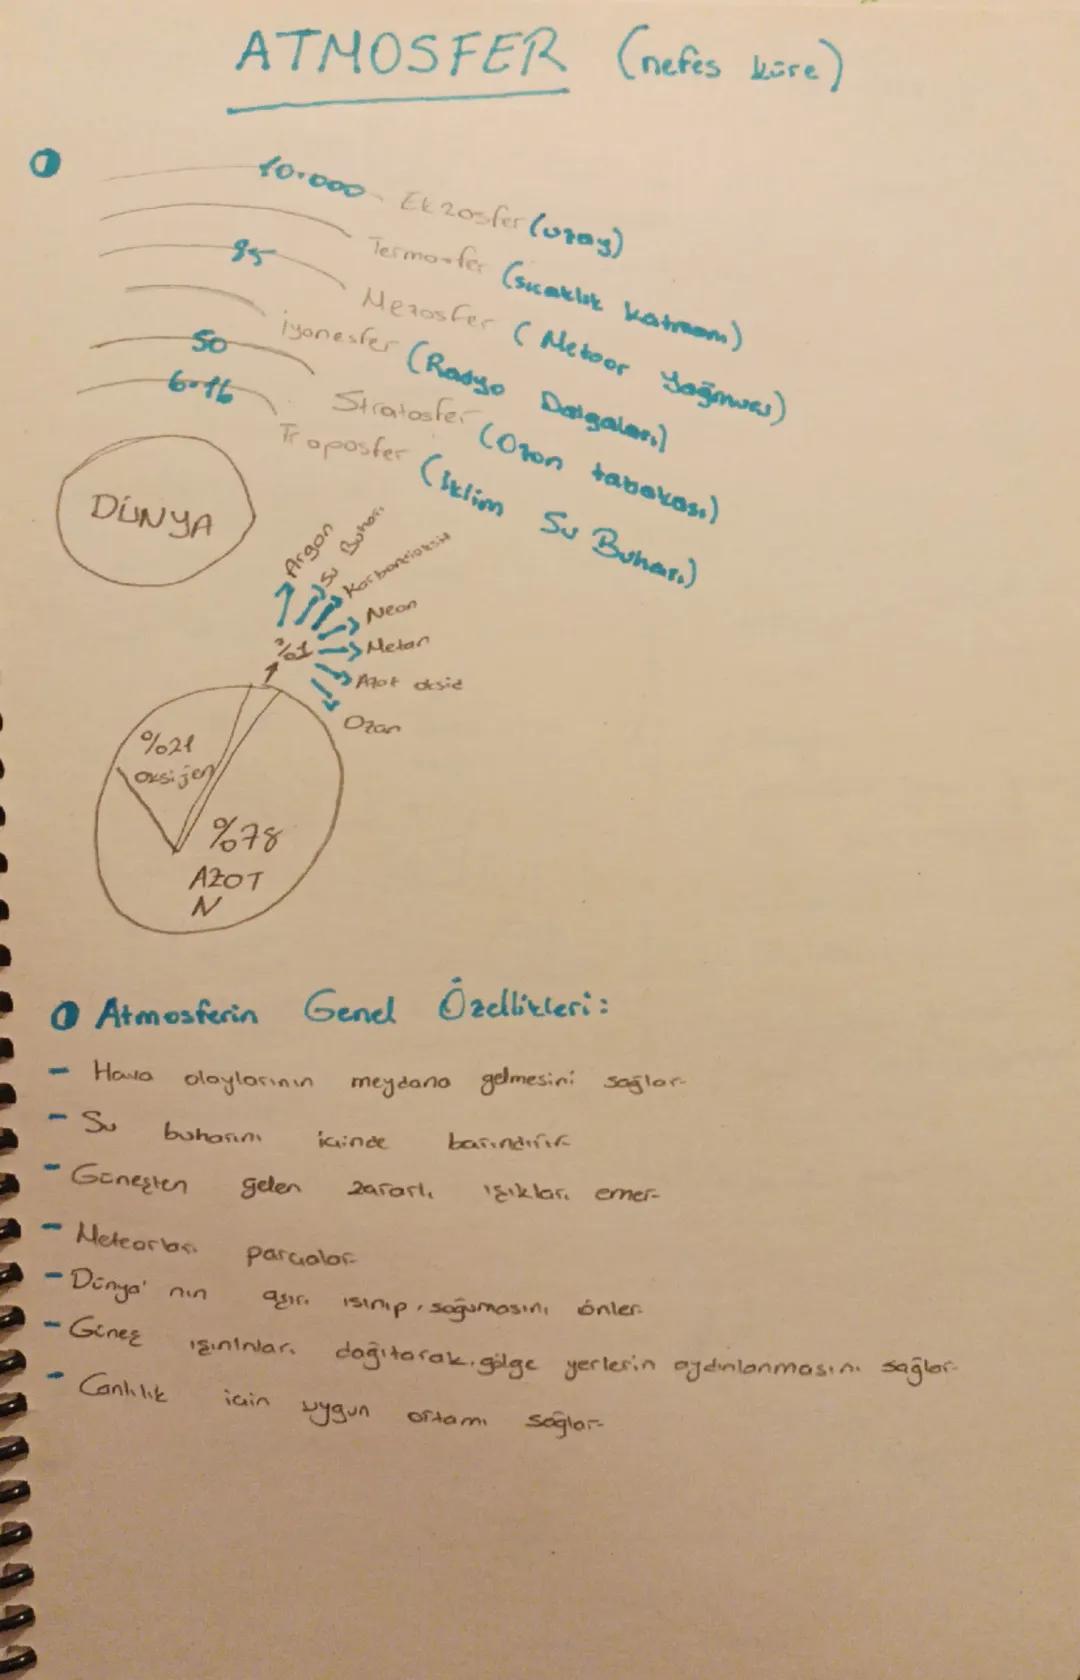 ATMOSFER (nefes küre)
10.000 Ekzosfer (uzay)
Termosfer (sıcaklık katmanı)
85
Mezosfer (Meteor Yağmuru)
İyonesfer (Radyo Dalgaları)
50
Stratosfer (Ozon tabakası)
6-16
Troposfer (İklim Su Buharı)
DÜNYA
Argon
Su Buharı
Karbondioksit
Neon
%1
Metan
Azot oksid
Ozan
%21
oksijen
%78
AZOT
N
Atmosferin Genel Özellikleri:
- Hava olaylarının meydana gelmesini sağlar.
- Su buharını içinde barındırır.
- Güneşten gelen zararlı ışıkları emer.
- Meteorları parçalar.
- Dünya'nın aşırı ısınıp, soğumasını önler.
- Güneş ışınınları dağıtarak, gölge yerlerin aydınlanmasını sağlar.
- Canlılık için uygun ortamı sağlar.